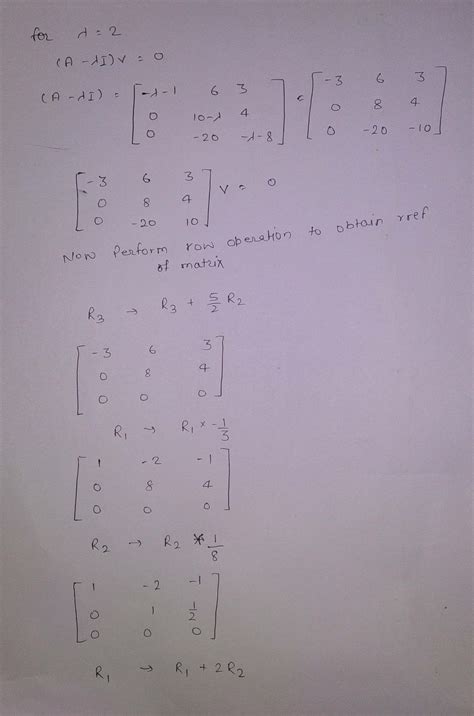 for λ = 2
(A - λI) V = 0
(A - λI) = [ -λ-1 6 3 ] = [ -3 6 3 ]
[ 0 10-λ 4 ] [ 0 8 4 ]
[ 0 -20 -λ-8 ] [ 0 -20 -10 ]
[ -3 6 3 ]
[ 0 8 4 ] V = 0
[ 0 -20 10 ]
Now Perform row operation to obtain rref
of matrix
R3 → R3 + 5/2 R2
[ -3 6 3 ]
[ 0 8 4 ]
[ 0 0 0 ]
R1 → R1 × -1/3
[ 1 -2 -1 ]
[ 0 8 4 ]
[ 0 0 0 ]
R2 → R2 * 1/8
[ 1 -2 -1 ]
[ 0 1 1/2 ]
[ 0 0 0 ]
R1 → R1 + 2R2